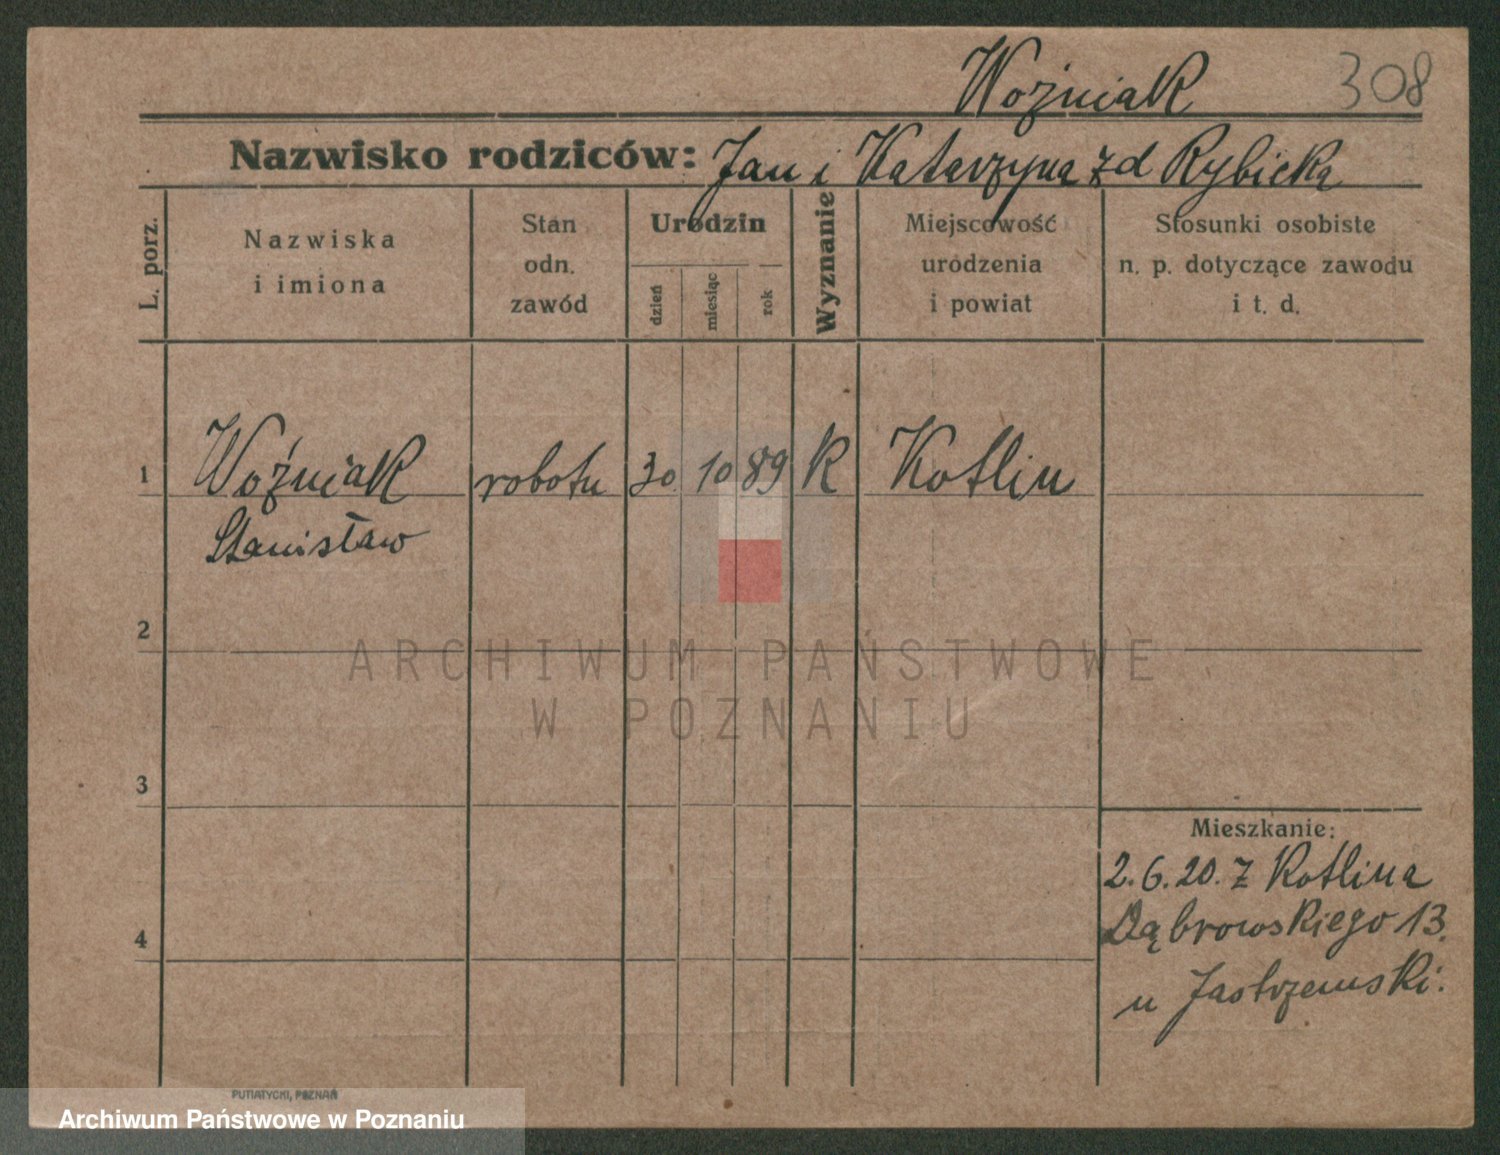 Woźniak 308
Nazwisko rodziców: Jan i Katarzyna zd Rybicka
L. porz.
Nazwiska
i imiona
Stan
odn.
zawód
Urodzin
dzień
miesiąc
rok
Wyznanie
Miejscowość
urodzenia
i powiat
Stosunki osobiste
n. p. dotyczące zawodu
i t. d.
1 Woźniak robotn 30 10 89 K Kotlin
Stanisław
2
3
4
Mieszkanie:
2.6.20. z Kotlina
Dąbrowskiego 13.
u Jastrzemski.
ARCHIWUM PAŃSTWOWE
W POZNANIU
PUTIATYCKI, POZNAŃ
Archiwum Państwowe w Poznaniu